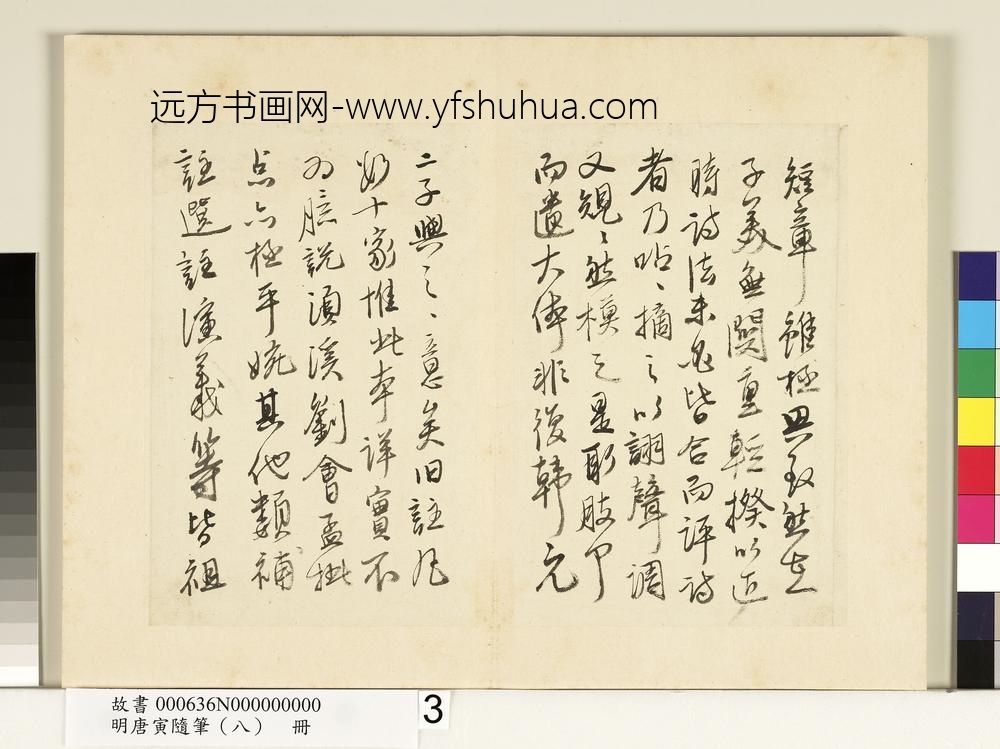 远方书画网-www.yfshuhua.com
短章雖極興致然在
子美無關重輕揆以近
時詩法未必皆合而評詩
者乃呫〻摘之以詡聲调
又規〻然模之是耴肢
而遺大体非後韩元
二子興之〻意矣旧註凡
數十家惟此本详實不
为臆説須溪劉會孟批
点亦極平婉其他類補
註選註演義等皆祖
故書 000636N000000000
明唐寅隨筆（八） 冊
3